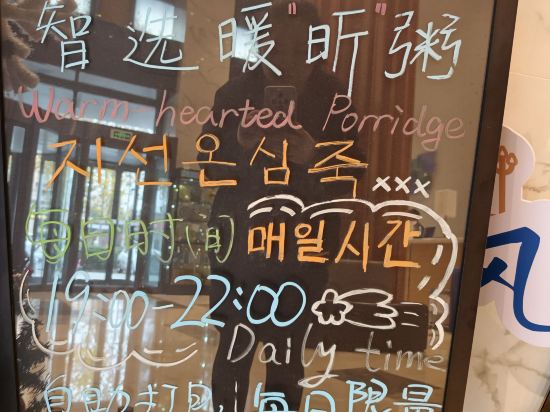 智选暖"昕"粥
Warm-hearted Porridge
지선온심죽 xxx
每日时间 매일시간
19:00-22:00
Daily time
每日限量